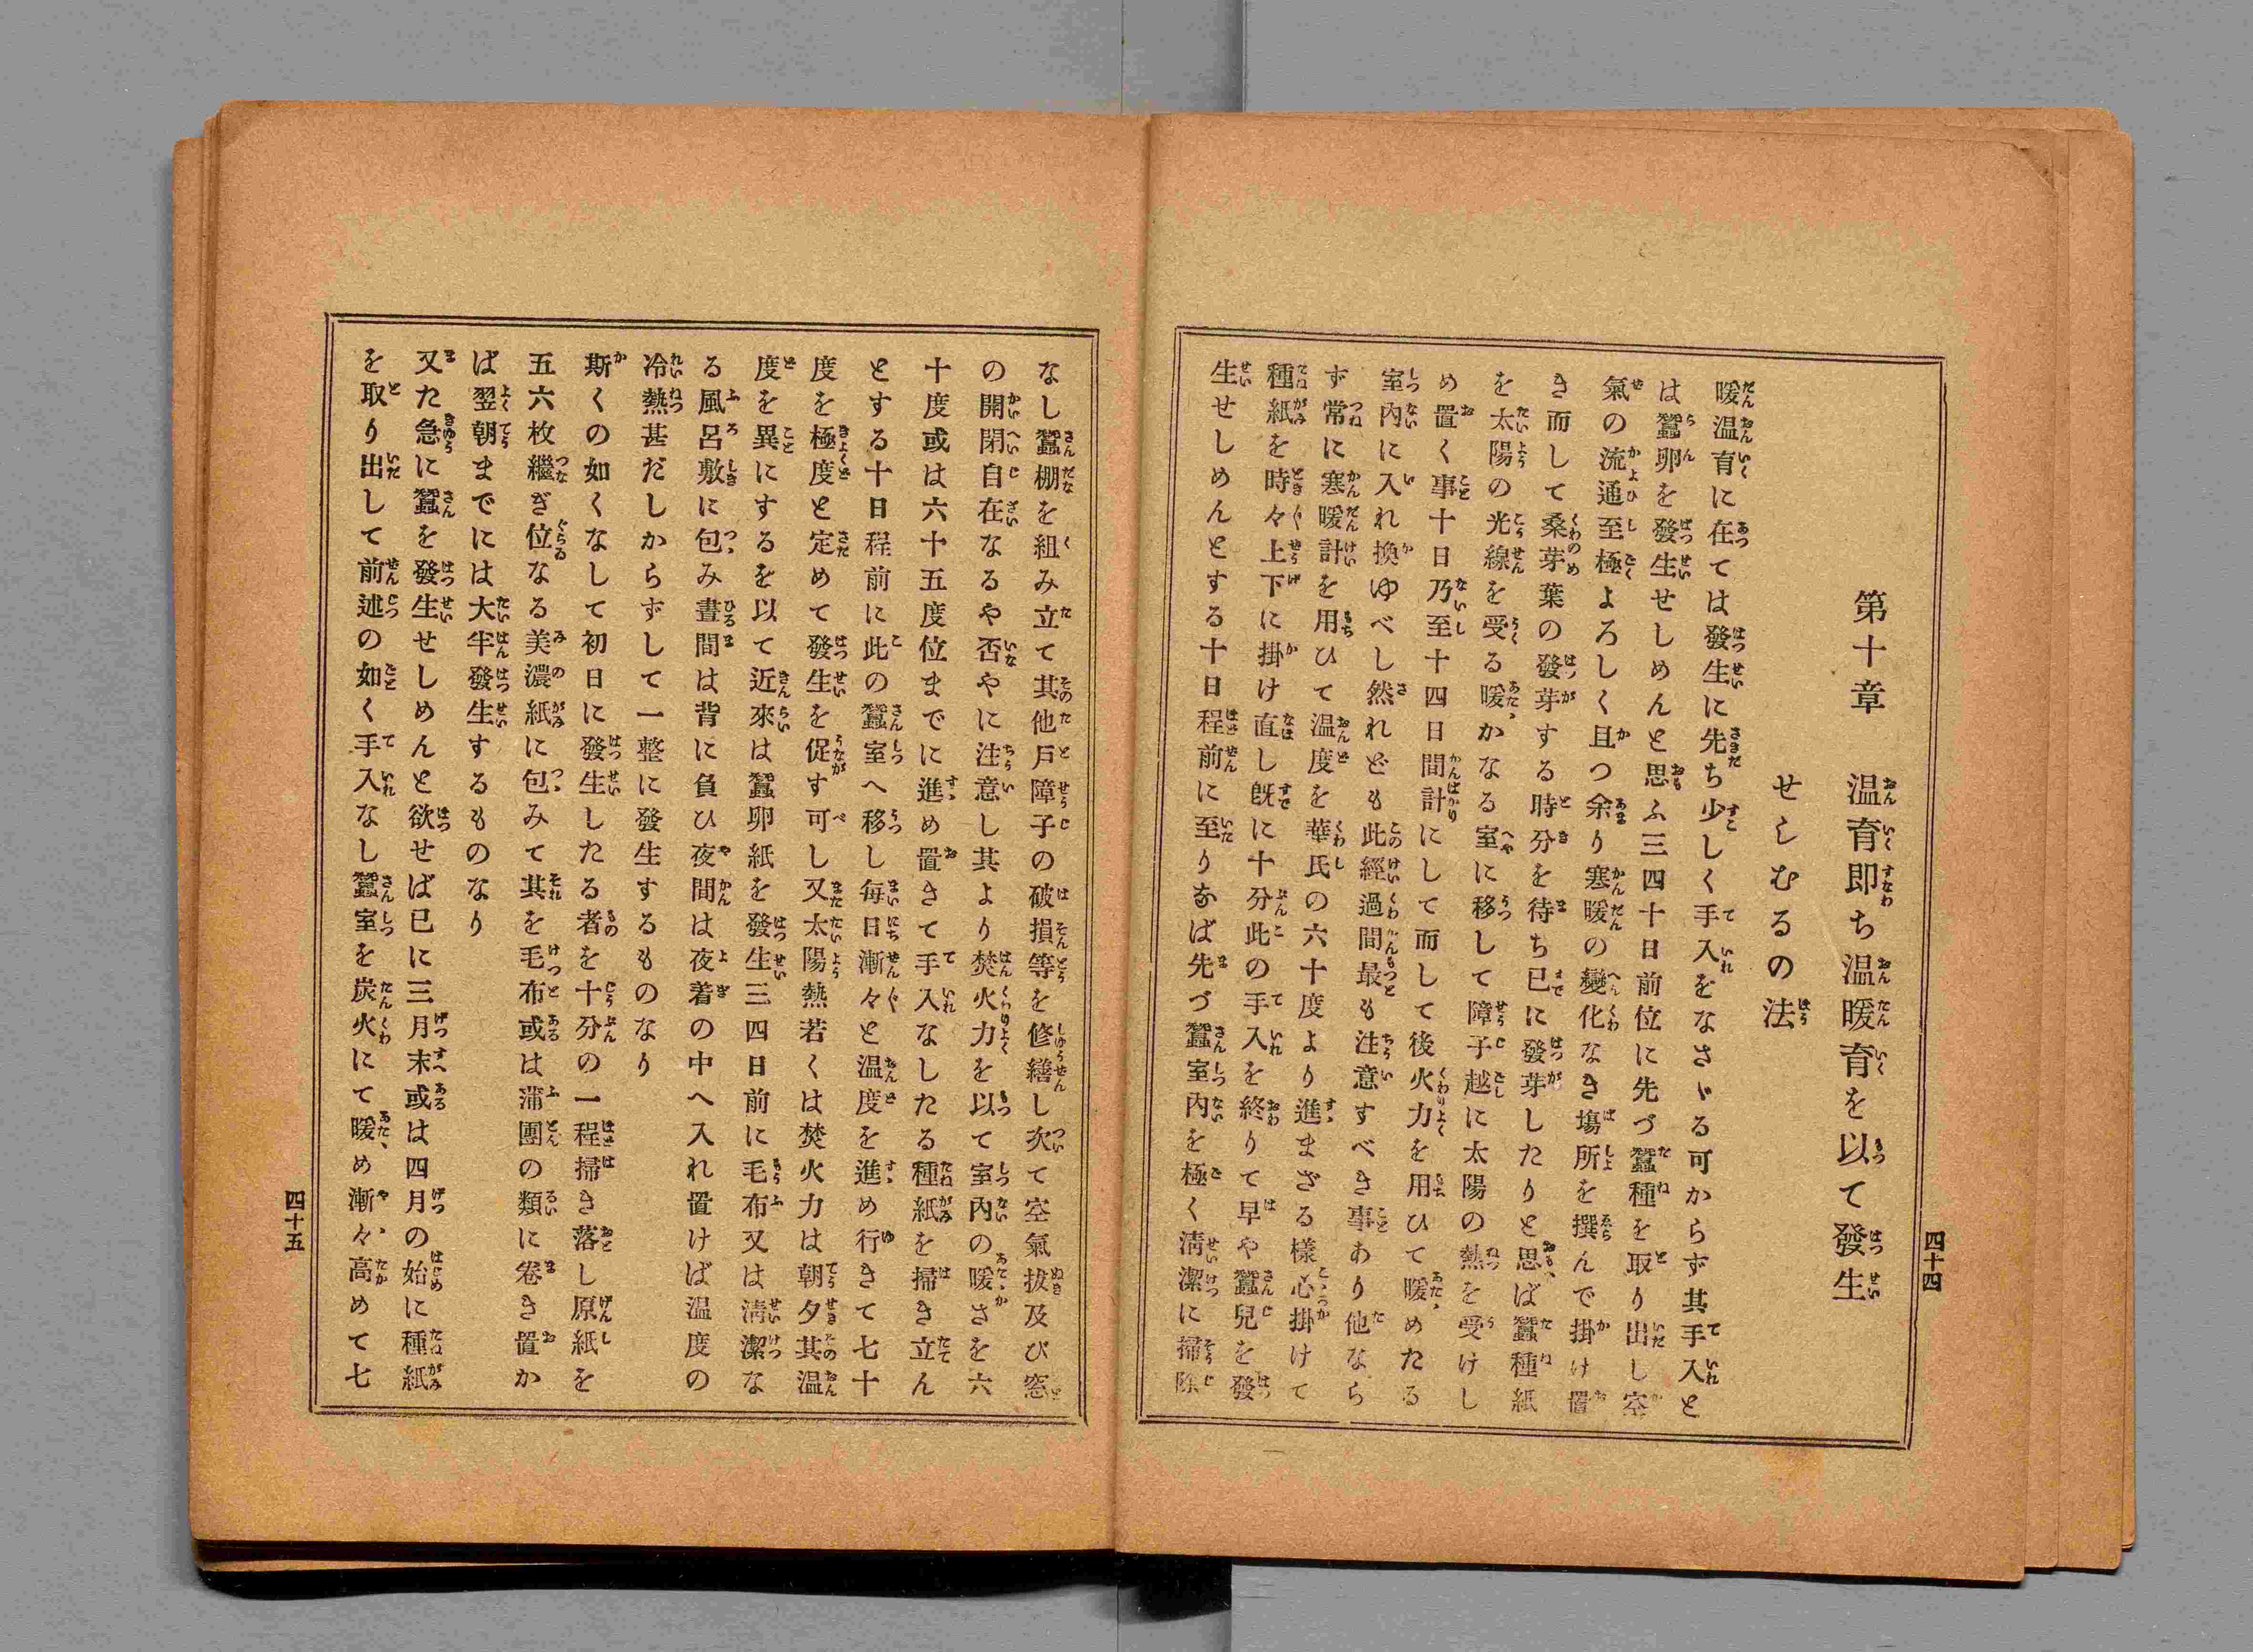 四十四
第十章　温育即ち温暖育を以て發生
せしむるの法
暖温育に在ては發生に先ち少しく手入をなさゞる可からず其手入と
は蠶卵を發生せしめんと思ふ三四十日前位に先づ蠶種を取り出し空
氣の流通至極よろしく且つ余り寒暖の變化なき塲所を撰んで掛け置
き而して桑芽葉の發芽する時分を待ち已に發芽したりと思ば蠶種紙
を太陽の光線を受る暖かなる室に移して障子越に太陽の熱を受けし
め置く事十日乃至十四日間計にして而して後火力を用ひて暖めたる
室內に入れ換ゆべし然れども此經過間最も注意すべき事あり他なら
ず常に寒暖計を用ひて温度を華氏の六十度より進まざる樣心掛けて
種紙を時々上下に掛け直し既に十分此の手入を終りて早や蠶兒を發
生せしめんとする十日程前に至りなば先づ蠶室內を極く淸潔に掃除
なし蠶棚を組み立て其他戸障子の破損等を修繕し次て空氣拔及び窓
の開閉自在なるや否やに注意し其より焚火力を以て室內の暖さを六
十度或は六十五度位までに進め置きて手入なしたる種紙を掃き立ん
とする十日程前に此の蠶室へ移し每日漸々と温度を進め行きて七十
度を極度と定めて發生を促す可し又太陽熱若くは焚火力は朝夕其温
度を異にするを以て近來は蠶卵紙を發生三四日前に毛布又は淸潔な
る風呂敷に包み晝間は背に負ひ夜間は夜着の中へ入れ置けば温度の
冷熱甚だしからずして一整に發生するものなり
斯くの如くなして初日に發生したる者を十分の一程掃き落し原紙を
五六枚繼ぎ位なる美濃紙に包みて其を毛布或は蒲團の類に卷き置か
ば翌朝までには大半發生するものなり
又た急に蠶を發生せしめんと欲せば已に三月末或は四月の始に種紙
を取り出して前述の如く手入なし蠶室を炭火にて暖め漸々高めて七
四十五